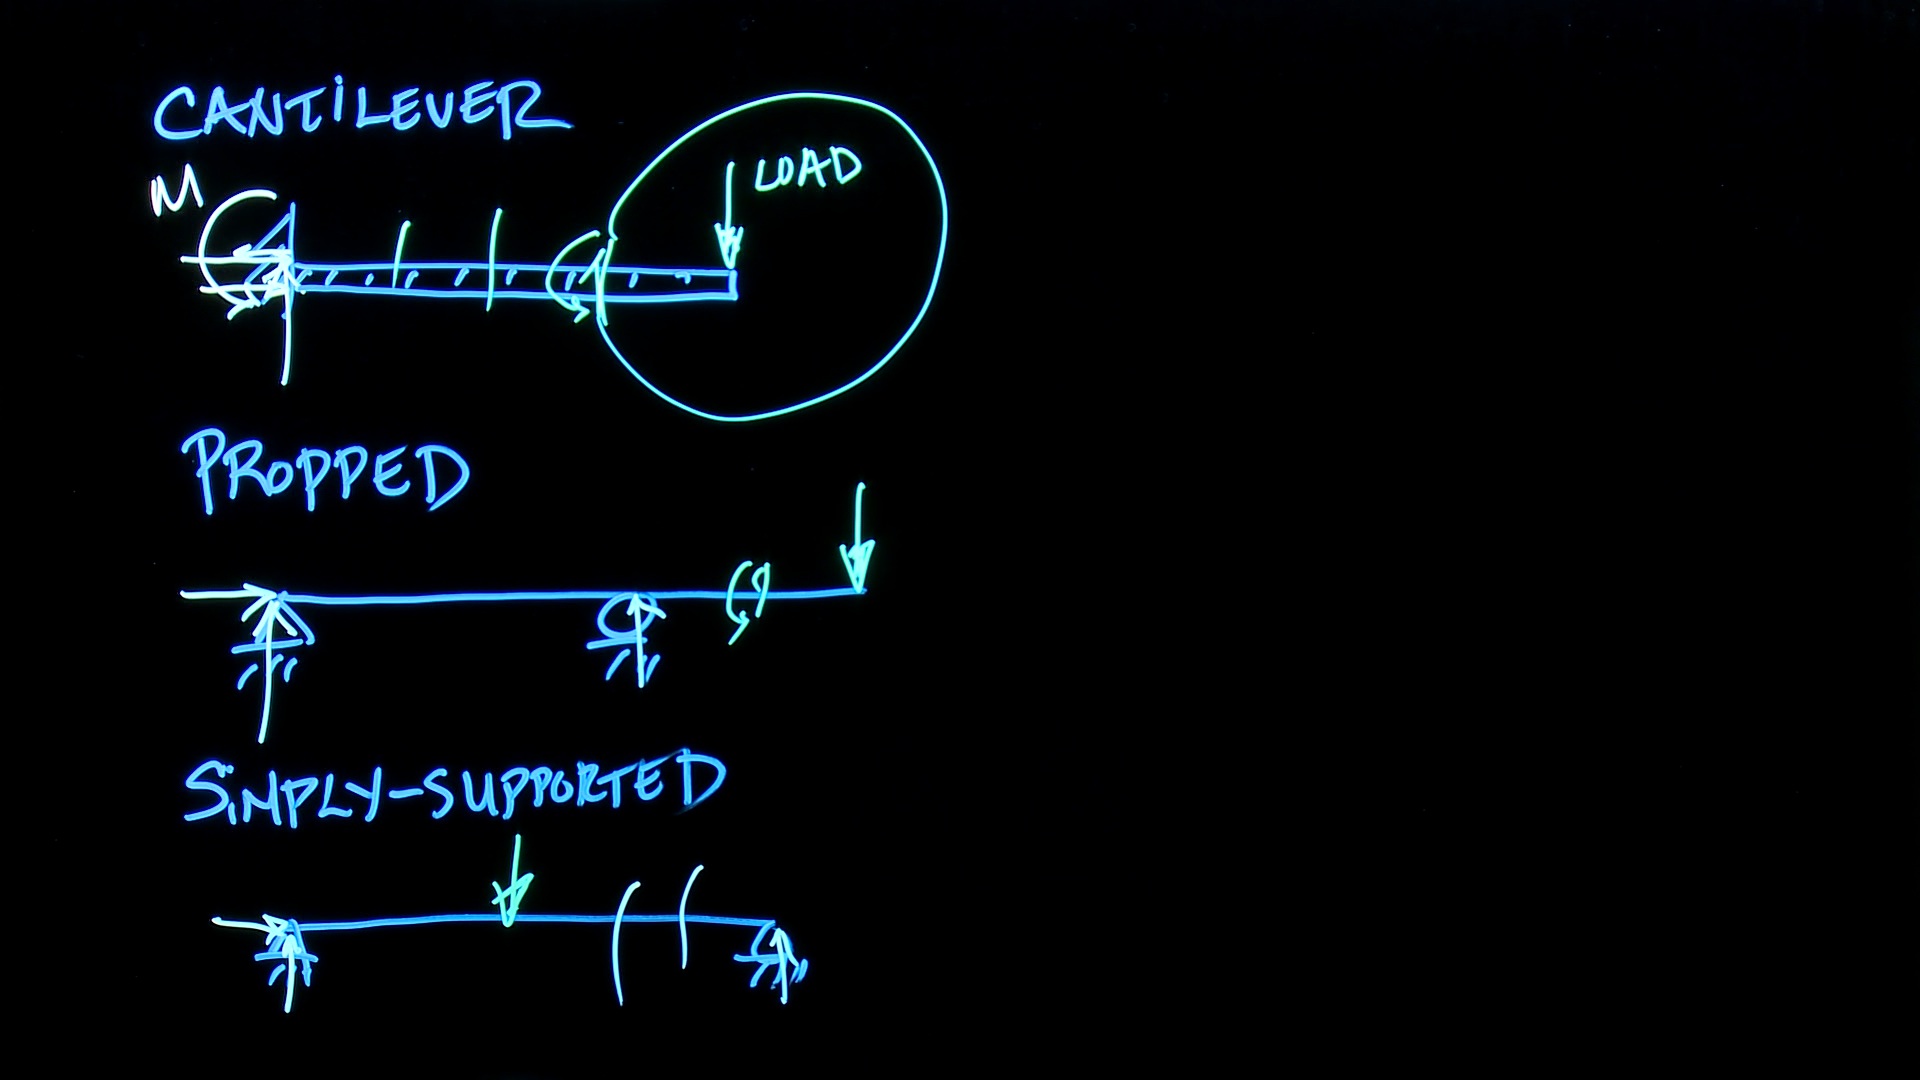 CANTILEVER
M
LOAD
PROPPED
SIMPLY-SUPPORTED